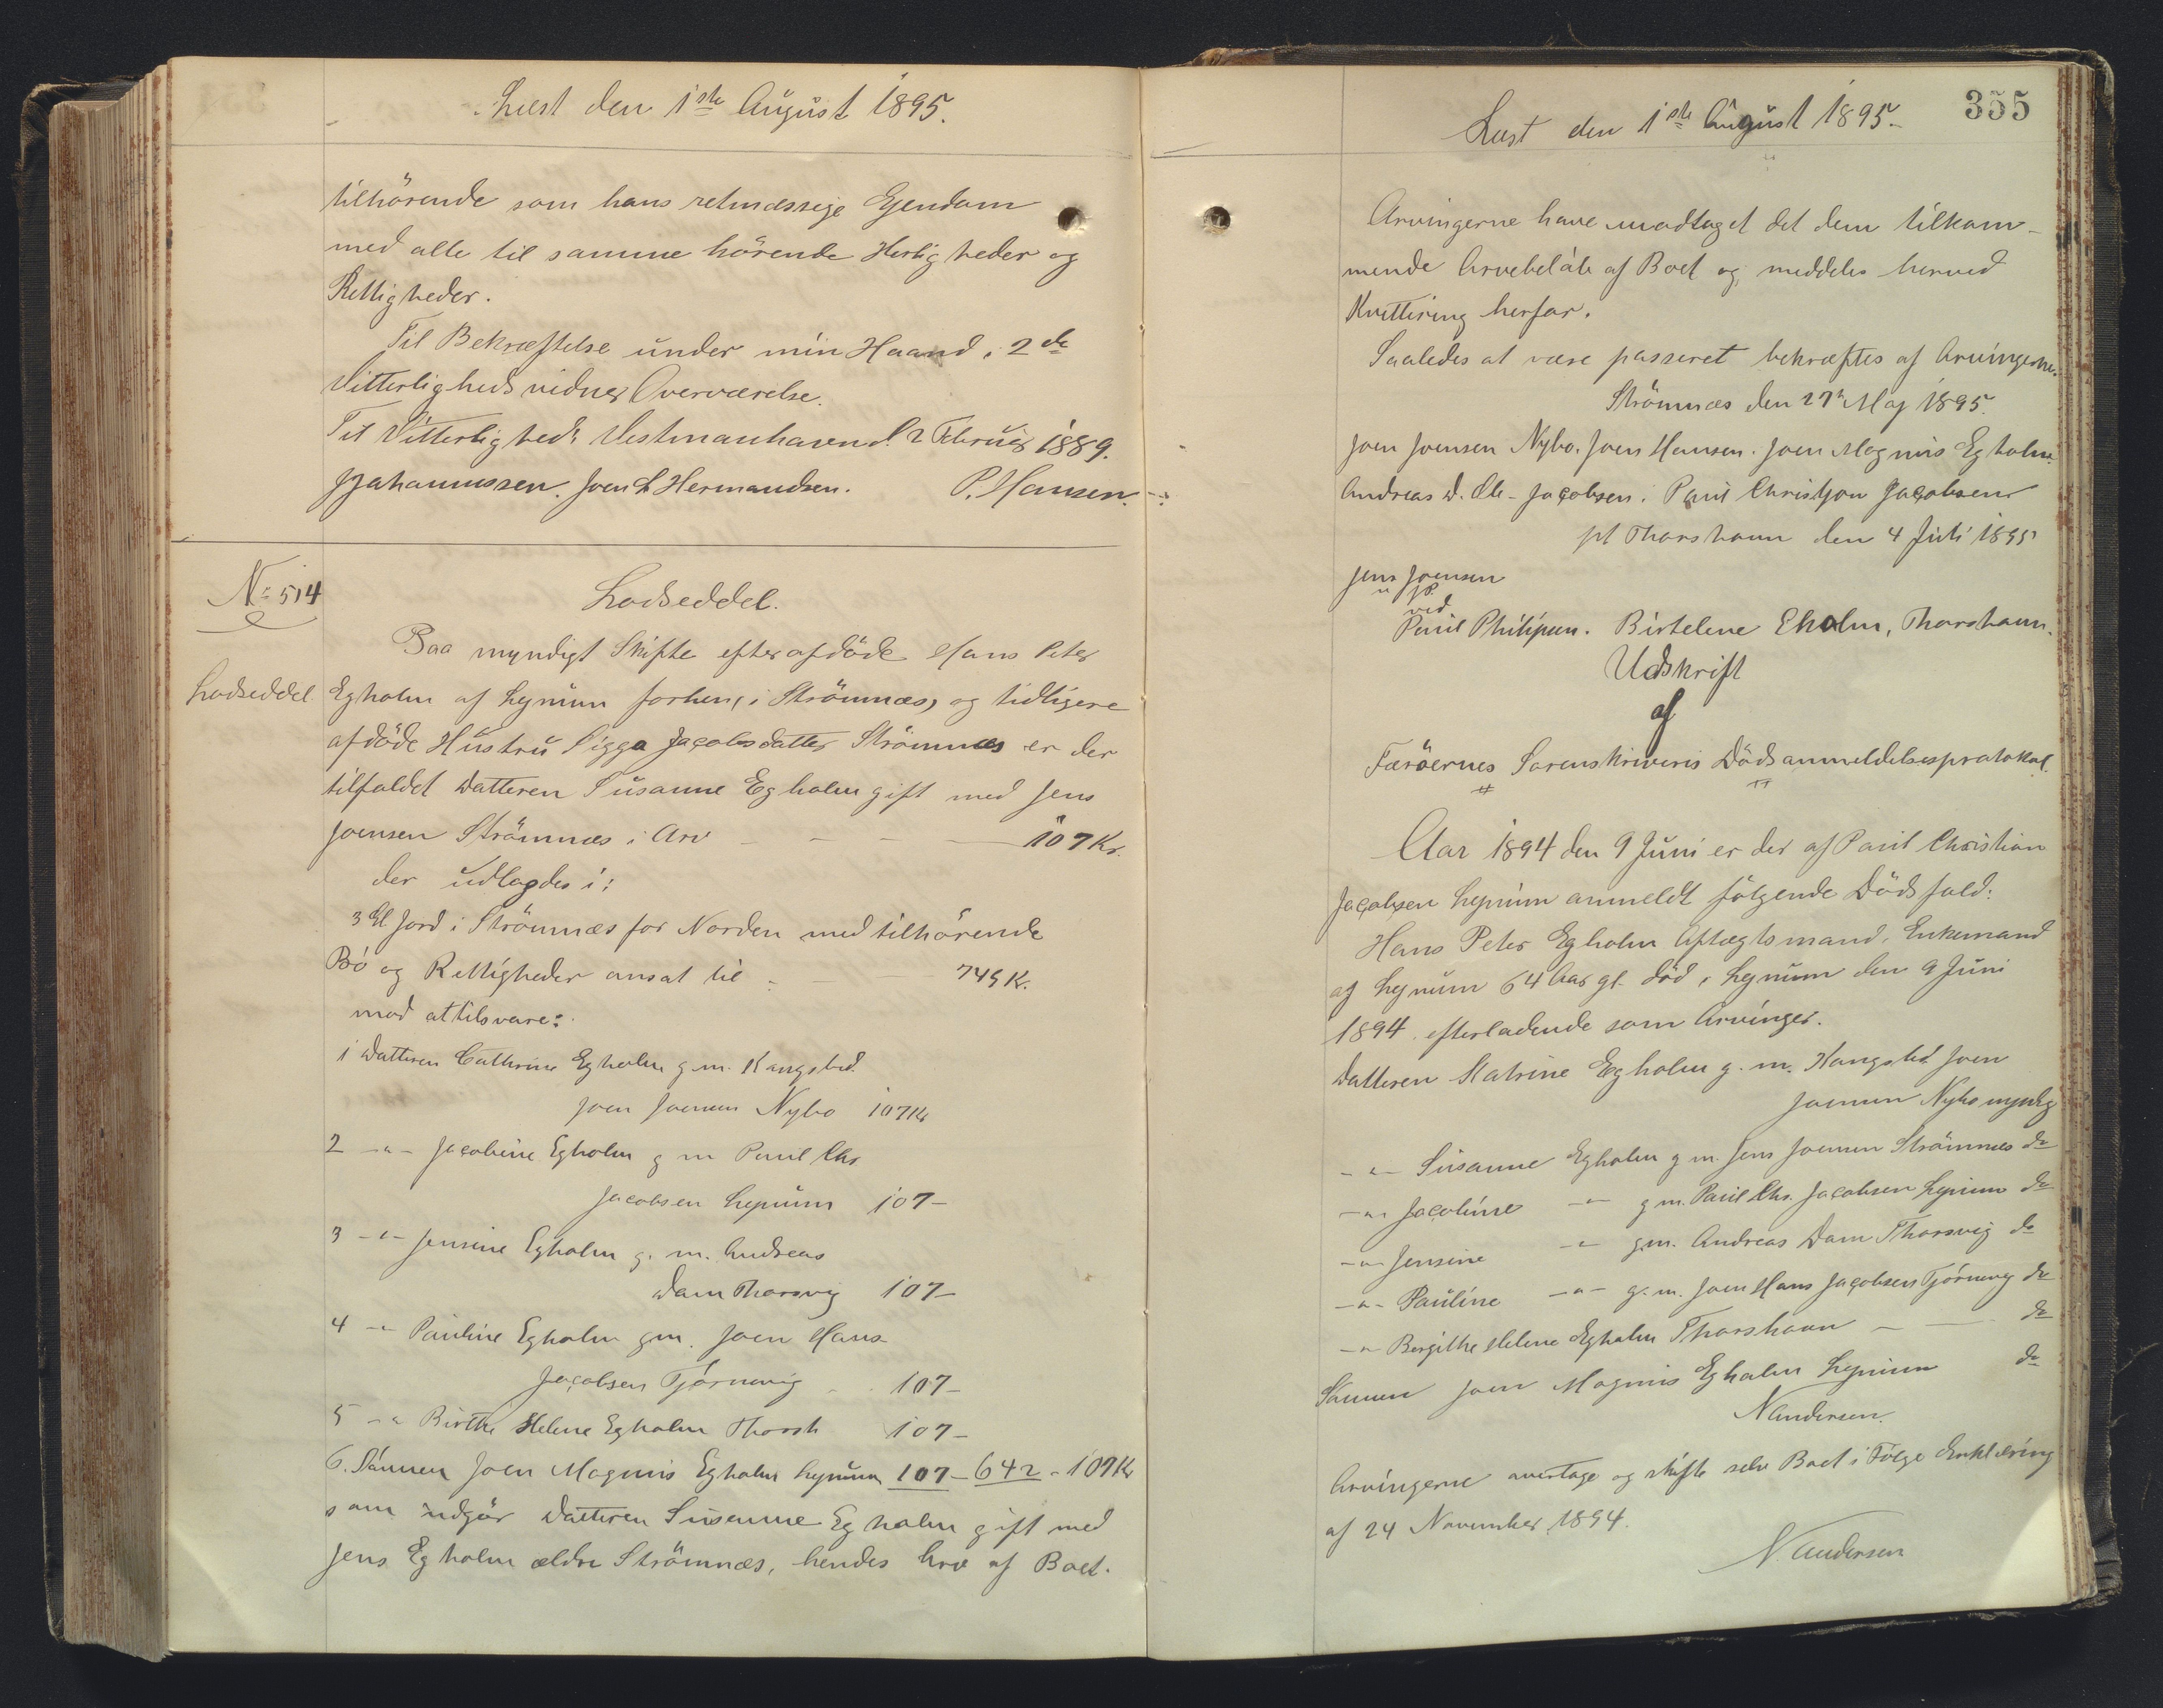 Læst den 1ste August 1895.
tilhörende som hans retmæssige Ejendom
med alle til samme hörende Herligheder og
Rettigheder.
Til Bekræftelse under min Haand i 2de
Vitterlighedsvidners Overværelse.
Til Vitterlighed: Vestmanhavn d. 2 Februar 1889.
J Johannessen. Joen L Hermandsen. P. Hansen.
No 514
Lodseddel.
Paa myndigt Skifte efter afdöde Hans Peter
Lodseddel
Egholm af Lynum forhen, i Strömnæs, og tidligere
afdöde Hustru Sigga Jacobsdatter Strömnæs er der
tilfaldet Datteren Susanne Egholm gift med Jens
Joensen Strömnæs i Arv - - - 107 Kr.
der udlagdes i:
3 Gl Jord i Strömnæs for Norden med tilhörende
Bö og Rettigheder ansat til - - 749 K.
mod at tilsvare:
1 Datteren Cathrine Egholm g. m. Kangsbd.
Joen Joensen Nybo 107 Kr
2 -"- Jacobine Egholm g m Paul Chr.
Jacobsen Lynum 107 -
3 -"- Jensine Egholm g. m. Andreas
Dam Thorsvig 107 -
4 -"- Pauline Egholm g m. Joen Hans
Jacobsen Tjörnevig 107 -
5 -"- Birthe Helene Egholm Thorsh 107 -
6. Sönnen Joen Magnus Egholm Lynum 107 - 642 - 107 Kr
som udgör Datteren Susanne Egholm gift med
Jens Egholm ældre Strömnæs, hendes Arv af Boet.
355
Læst den 1ste August 1895.
Arvingerne have modtaget det dem tilkom-
mende Arvebelöb af Boet og meddeles herved
Kvittering herfor.
Saaledes at være passeret bekræftes af Arvingerne.
Strömnæs den 27 Maj 1895.
Joen Joensen Nybo. Joen Hansen. Joen Magnus Egholm.
Andreas D. Ch- Jacobsen. Paul Christjan Jacobsen
pt Thorshavn den 4 Juli 1895
Jens Joensen
ved
Paul Philipsen. Birtelene Eholm, Thorshavn.
Udskrift
af
Færöernes Sorenskriveris Dödsanmeldelsesprotokol.
Aar 1894 den 9 Juni er der af Paul Christian
Jacobsen Lynum anmeldt fölgende Dödsfald:
Hans Peter Egholm Aftægtsmand, Enkemand
af Lynum 64 Aar gl. död i Lynum den 9 Juni
1894 efterladende som Arvinger.
Datteren Katrine Egholm g. m. Kangsbd Joen
Joensen Nybo myndig
-"- Susanne Egholm g m. Jens Joensen Strömnæs do
-"- Jacobine -"- g m. Paul Chr. Jacobsen Lynum do
-"- Jensine -"- g.m. Andreas Dam Thorsvig do
-"- Pauline -"- g. m. Joen Hans Jacobsen Tjörnevig do
-"- Birgithe Helene Egholm Thorshavn - - do
Sönnen Joen Magnus Egholm Lynum do
N Andersen.
Arvingerne overtage og skifte selv Boet i Fölge Erklæring
af 24 November 1894.
N Andersen